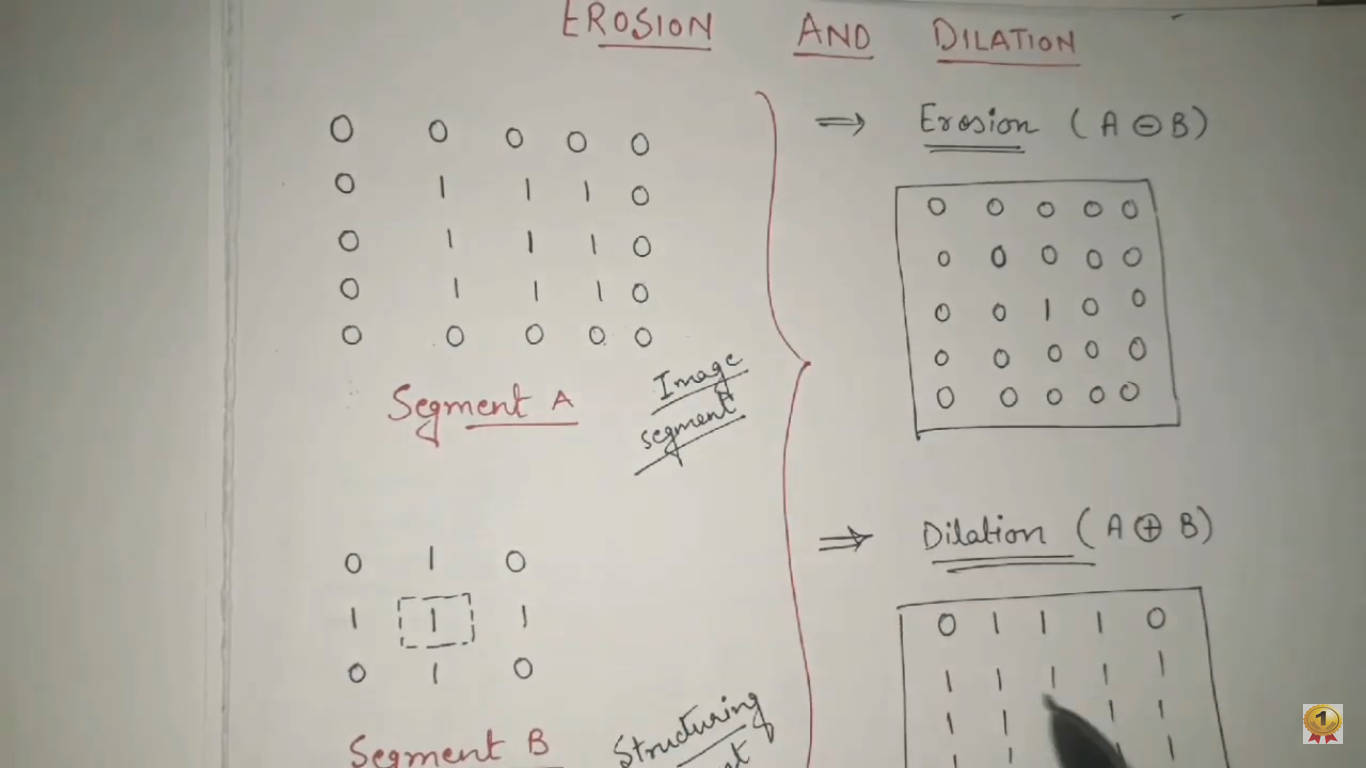 EROSION AND DILATION
0 0 0 0 0
0 1 1 1 0
0 1 1 1 0
0 1 1 1 0
0 0 0 0 0
Segment A
Image
segment
0 1 0
1 1 1
0 1 0
Segment B
Structuring
⇒ Erosion (A ⊖ B)
0 0 0 0 0
0 0 0 0 0
0 0 1 0 0
0 0 0 0 0
0 0 0 0 0
⇒ Dilation (A ⊕ B)
0 1 1 1 0
1 1 1 1 1
1 1 1 1
1 1 1 1
1